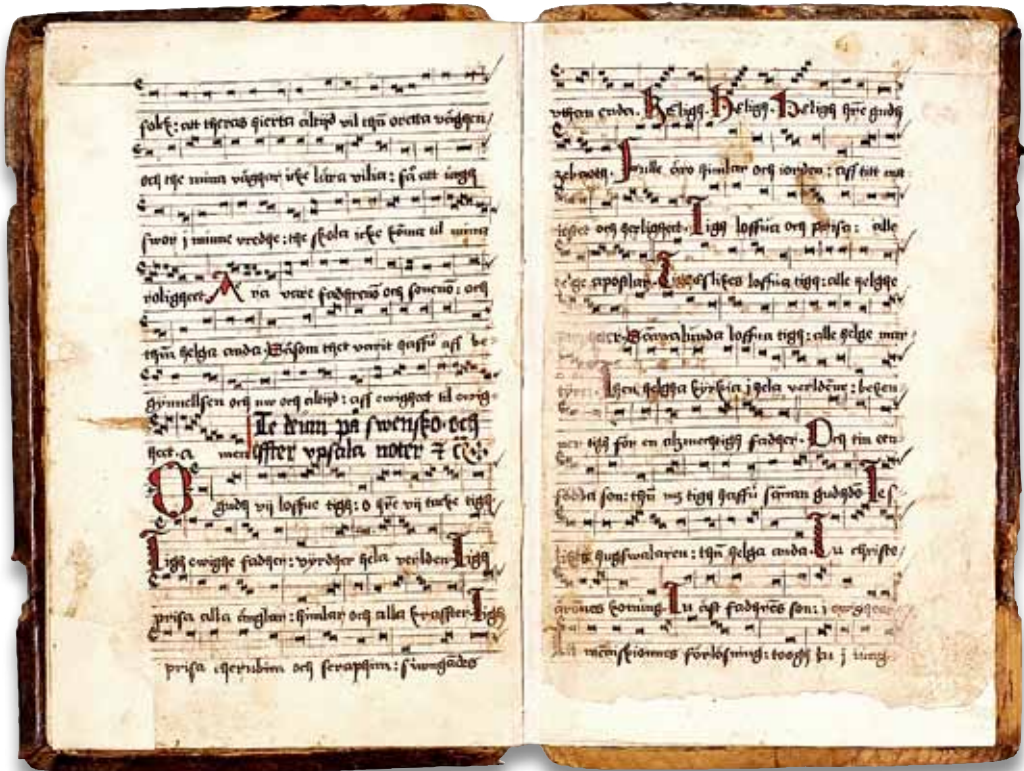 folk: att theras hierta altijd vil thñ oretta väghen/
och the mina väghar icke lära vilia: så att iagh
swor j minne vredhe: the skola icke koma til mina
roligheet. Ara vare fadhrenō och sonenō: och
thñ helga anda. Såsom thet varit haffů aff be-
gynnelsen och nw och altijd: aff ewighet til ewig-
heet. a men
Te deum på swensko och
effter vpsala noter
O gudh vij loffue tigh: o hr̄e vij tacke tigh.
Tigh ewighe fadher: vyrdher hela verlden Tigh
prisa alla änglar: himlar och alla kraffter. Tigh
prisa cherubim och seraphim: siwngādes
vthan enda. Heligh. Heligh. Heligh hr̄e gudh
zebaoth. Fulle äro himlar och iorden: aff titt mai
och herlighet. Tigh loffua och prisa: alle
apostlar. Tigeslikes loffua tigh: alle helghe
Sāmalunda loffua tigh: alle helge mar
tyrer. Then helgha kyrkia j hela verldēne: beken
ner tigh för en alzmechtigh fadher. Och tin een
födda son: thñ mz tigh haffů saman gudhdō Tes
likes hugswalaren: thñ helga anda. Tu christe/
ärones koning. Tu äst fadhrēs son: i
menskiones förlosning: toogh tu j